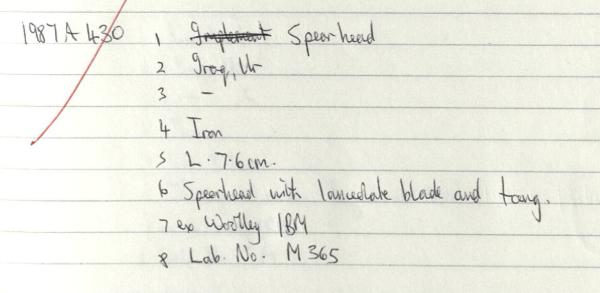 1987 A 430 1 Implement Spearhead
2 Iraq, Ur
3 –
4 Iron
5 L. 7.6 cm.
6 Spearhead with lanceolate blade and tang.
7 ex Woolley / BM
8 Lab. No. M 365